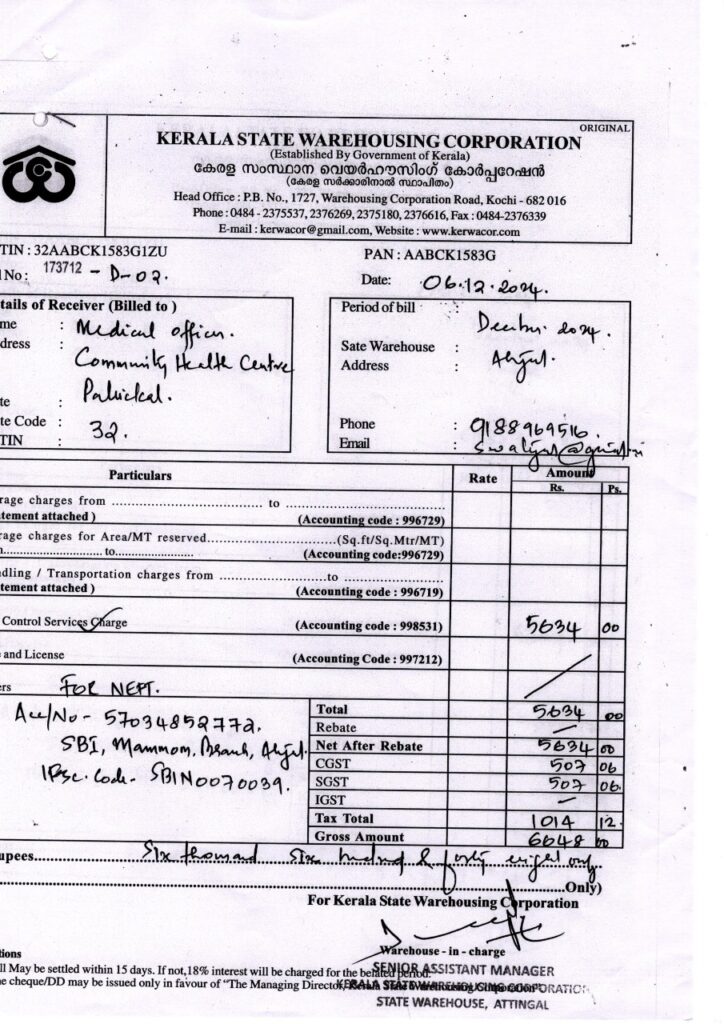 ORIGINAL
KERALA STATE WAREHOUSING CORPORATION
(Established By Government of Kerala)
കേരള സംസ്ഥാന വെയർഹൗസിംഗ് കോർപ്പറേഷൻ
(കേരള സർക്കാരിനാൽ സ്ഥാപിതം)
Head Office : P.B. No., 1727, Warehousing Corporation Road, Kochi - 682 016
Phone : 0484 - 2375537, 2376269, 2375180, 2376616, Fax : 0484-2376339
E-mail : kerwacor@gmail.com, Website : www.kerwacor.com
TIN : 32AABCK1583G1ZU PAN : AABCK1583G
l No : 173712 - D-02. Date: 06.12.2024.
tails of Receiver (Billed to )
me : Medical officer.
dress : Community Health Centre
Pallickal.
te :
te Code : 32.
TIN :
Period of bill : 2024.
Sate Warehouse :
Address :
Phone : 9188969516.
Email :
Particulars Rate Amount
Rs. Ps.
rage charges from .......... to ..........
tement attached ) (Accounting code : 996729)
rage charges for Area/MT reserved..........(Sq.ft/Sq.Mtr/MT)
..........to.......... (Accounting code:996729)
dling / Transportation charges from ..........to ..........
tement attached ) (Accounting code : 996719)
Control Services Charge (Accounting code : 998531) 5634 00
and License (Accounting Code : 997212)
ers FOR NEFT.
Acc/No - 57034852772.
SBI, Branch,
IFSC. Code - SBIN0070039.
Total 5634 00
Rebate —
Net After Rebate 5634 00
CGST 507 06
SGST 507 06.
IGST —
Tax Total 1014 12.
Gross Amount 6648 00
upees.......... Six thousand six hundred & forty eight only
..........Only)
For Kerala State Warehousing Corporation
Warehouse - in - charge
SENIOR ASSISTANT MANAGER
KERALA STATE WAREHOUSING CORPORATION
STATE WAREHOUSE, ATTINGAL
tions
ll May be settled within 15 days. If not,18% interest will be charged for the belated period.
e cheque/DD may be issued only in favour of "The Managing Director, Kerala State Warehousing Corporation"